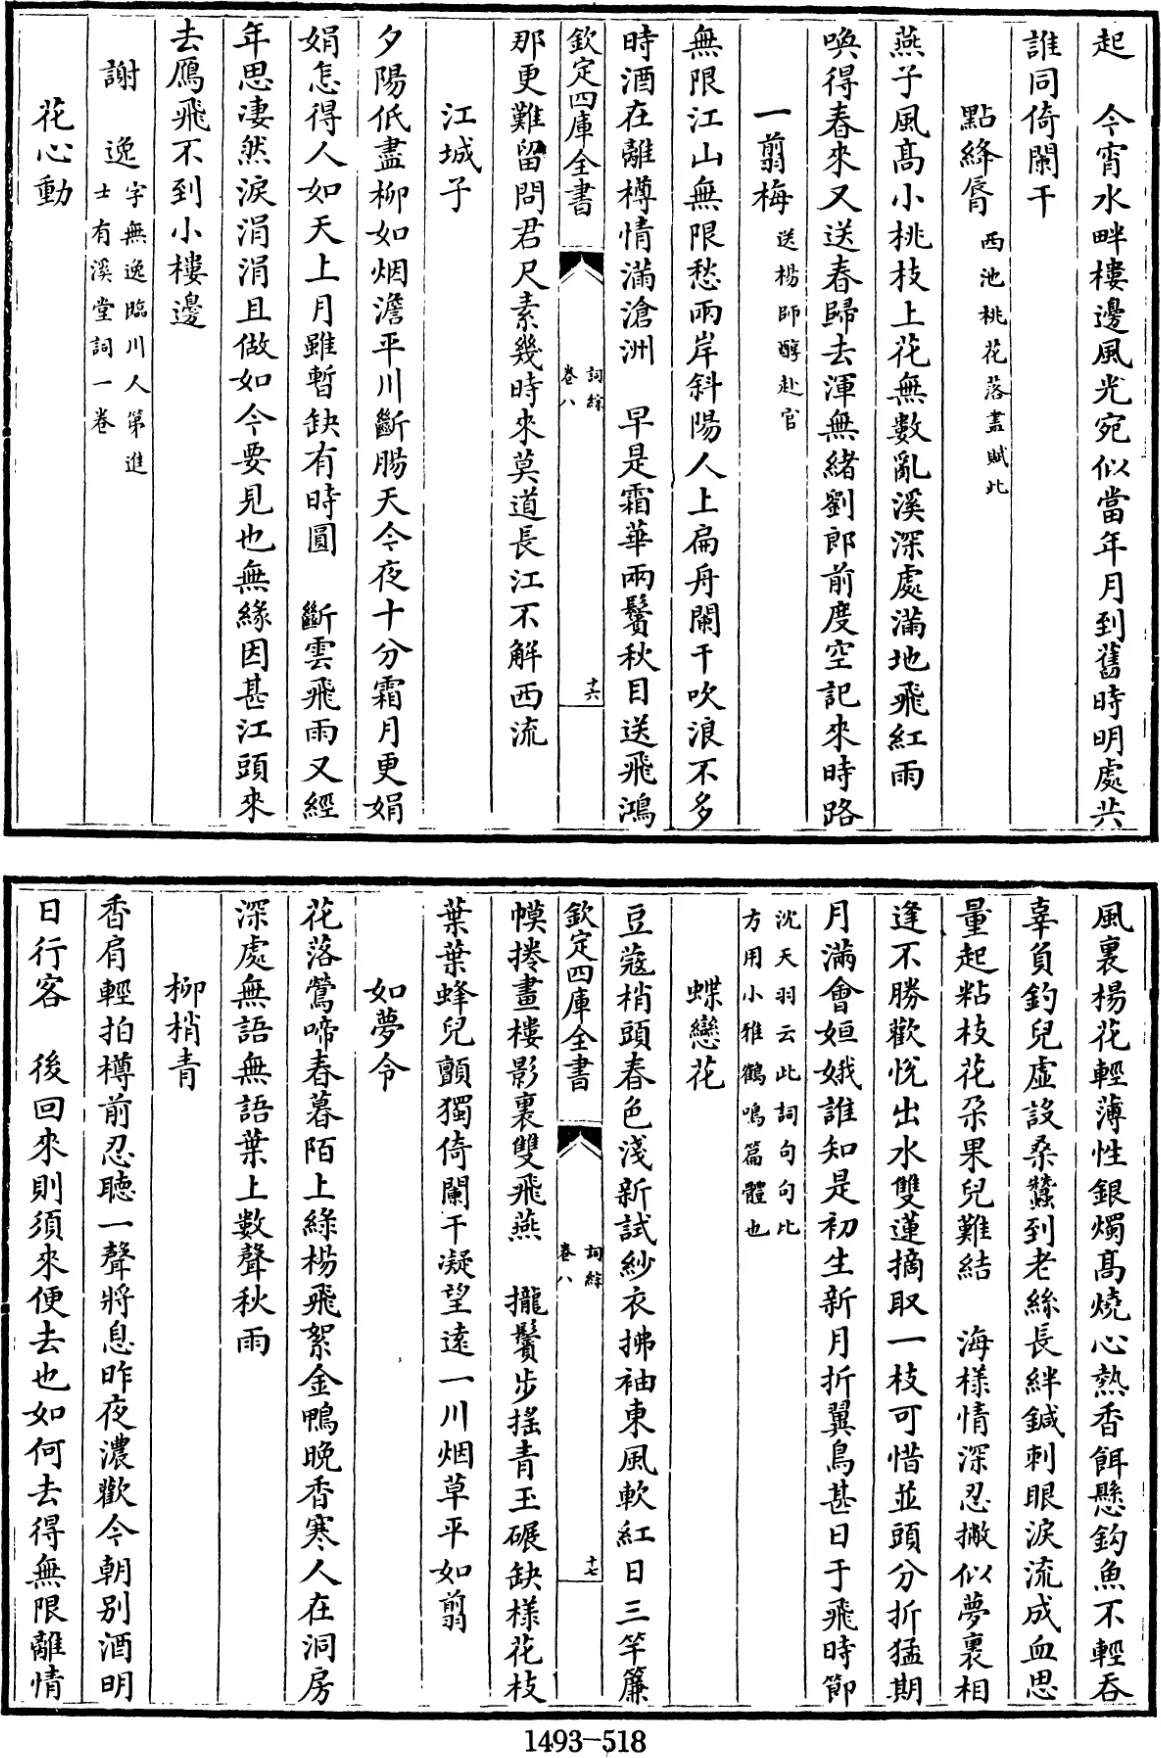 起　今宵水畔樓邊風光宛似當年月到舊時明處共
誰同倚闌干
點絳脣 西池桃花落盡賦此
燕子風高小桃枝上花無數亂溪深處滿地飛紅雨
喚得春來又送春歸去渾無緒劉郎前度空記來時路
一翦梅 送楊師醇赴官
無限江山無限愁兩岸斜陽人上扁舟闌干吹浪不多
時酒在離樽情滿滄洲　早是霜華兩鬢秋目送飛鴻
欽定四庫全書 詞綜 卷八 十六
那更難留問君尺素幾時來莫道長江不解西流
江城子
夕陽低盡柳如烟澹平川斷腸天今夜十分霜月更娟
娟怎得人如天上月雖暫缺有時圓　斷雲飛雨又經
年思凄然淚涓涓且做如今要見也無緣因甚江頭來
去鴈飛不到小樓邊
謝逸 字無逸臨川人第進
士有溪堂詞一卷
花心動
風裏楊花輕薄性銀燭髙燒心熱香餌懸鈎魚不輕吞
辜負釣兒虛設桑蠶到老絲長絆鍼刺眼淚流成血思
量起粘枝花朶果兒難結　海樣情深忍撇似夢裏相
逢不勝歡悅出水雙蓮摘取一枝可惜並頭分折猛期
月滿會姮娥誰知是初生新月折翼鳥甚日于飛時節
沈天羽云此詞句句比
方用小雅鶴鳴篇體也
蝶戀花
豆蔻梢頭春色淺新試紗衣拂袖東風軟紅日三竿簾
欽定四庫全書 詞綜 卷八 十七
幙捲畫樓影裏雙飛燕　攏鬢步搖青玉碾缺様花枝
葉葉蜂兒顫獨倚闌干凝望遠一川烟草平如翦
如夢令
花落鶯啼春暮陌上綠楊飛絮金鴨晚香寒人在洞房
深處無語無語葉上數聲秋雨
柳梢青
香肩輕拍樽前忍聽一聲將息昨夜濃歡今朝别酒明
日行客　後回來則須來便去也如何去得無限離情
1493-518